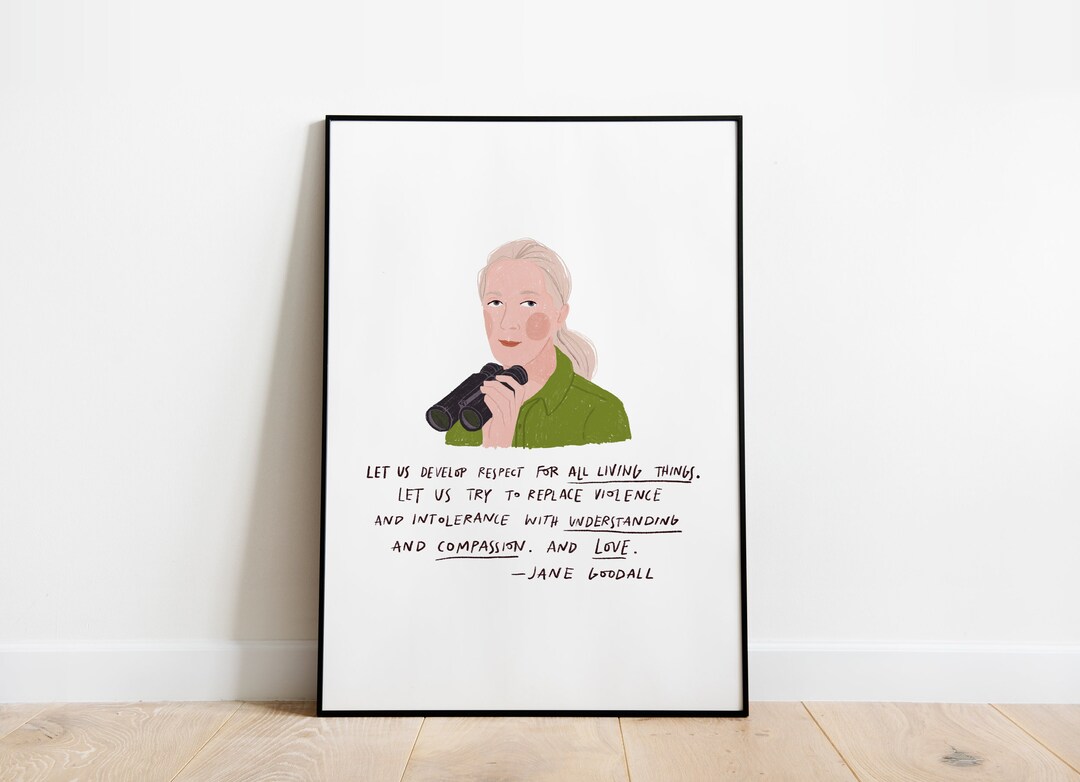 LET US DEVELOP RESPECT FOR ALL LIVING THINGS.
LET US TRY TO REPLACE VIOLENCE
AND INTOLERANCE WITH UNDERSTANDING
AND COMPASSION. AND LOVE.
—JANE GOODALL